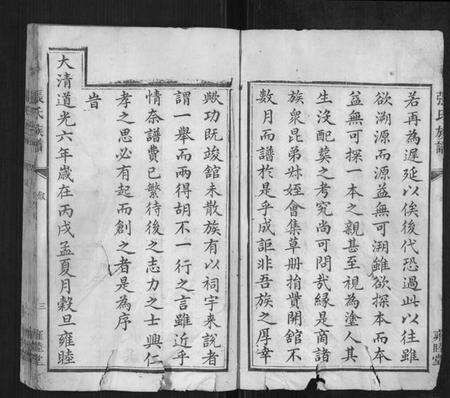 張氏族譜
若再為遲延以俟後代恐過此以往雖
欲溯源而源益無可溯雖欲探本而本
益無可探一本之親甚至視為塗人其
生沒配葬之考究尚可問哉緣是商諸
族衆昆弟姪會集草冊捐貲開舘不
數月而譜於是乎成詎非吾族之厚幸
雍睦堂
歟功既竣舘未散族有以祠宇来說者
謂一舉而兩得胡不一行之言雖近乎
情奈譜費已繁待後之志力之士興仁
孝之思必有起而創之者是為序
旹
大清道光六年歲在丙戌孟夏月穀旦雍睦
張氏族譜
三
雍睦堂